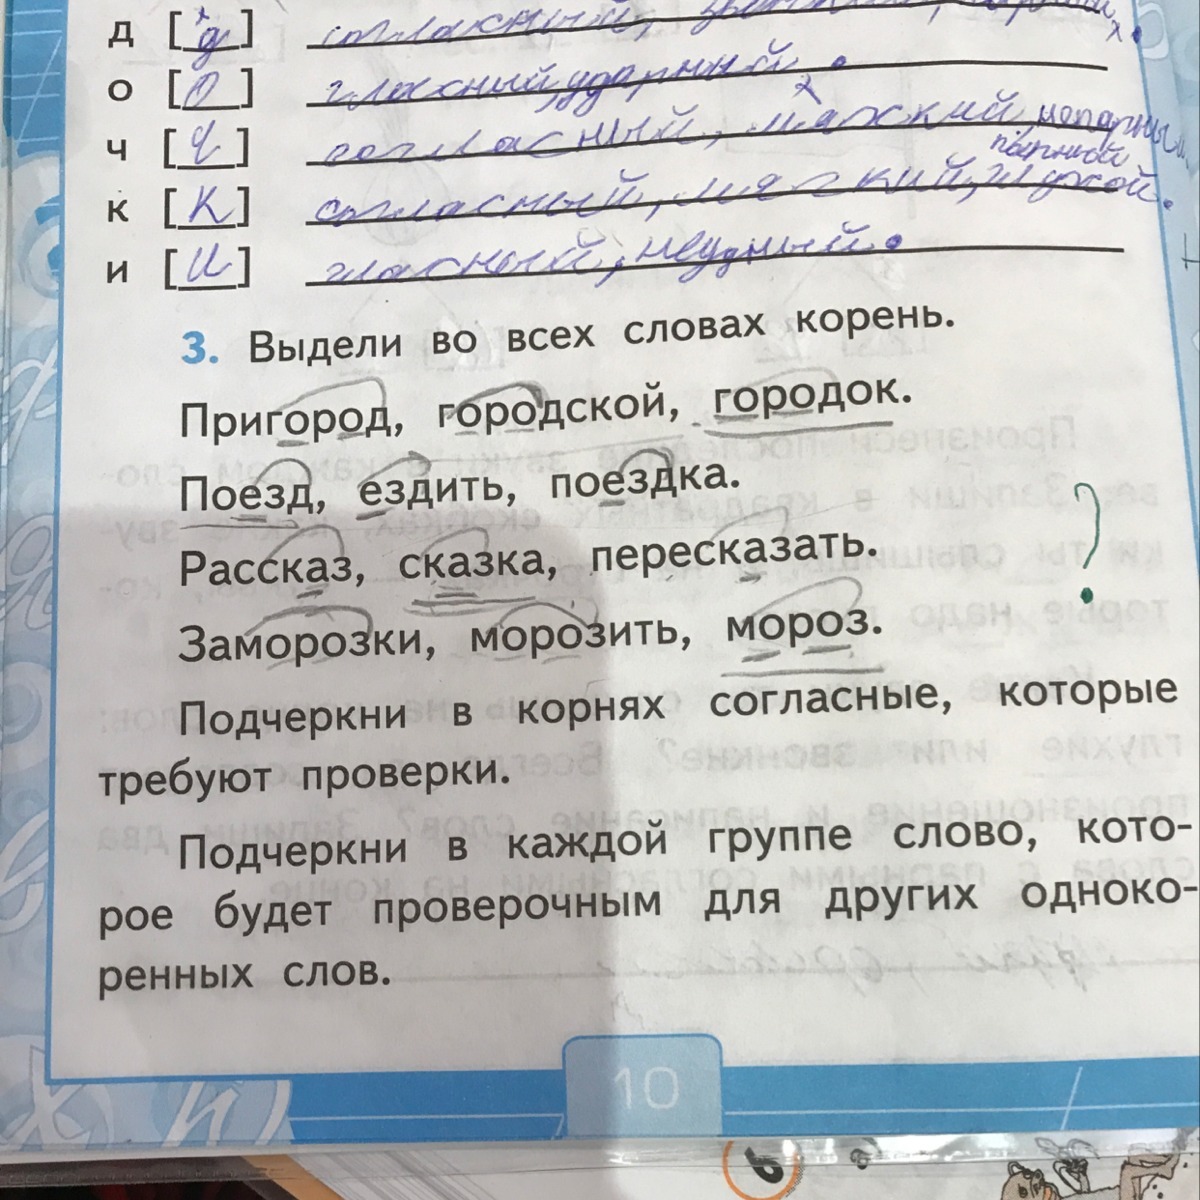 д [д] согласный,
о [о] гласный, ударный.
ч [ч] согласный, мягкий, непарный,
парный
к [к] согласный, мягкий, глухой.
и [и] гласный, неудный.
3. Выдели во всех словах корень.
Пригород, городской, городок.
Поезд, ездить, поездка.
Рассказ, сказка, пересказать.
?
Заморозки, морозить, мороз.
Подчеркни в корнях согласные, которые
требуют проверки.
Подчеркни в каждой группе слово, кото-
рое будет проверочным для других одноко-
ренных слов.
10